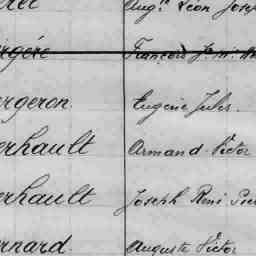 Augte Léon Joseph
François J. M.
rgeron Eugène Jules
erhault Armand Victor
erhault Joseph René Pie
rnard Auguste Victor